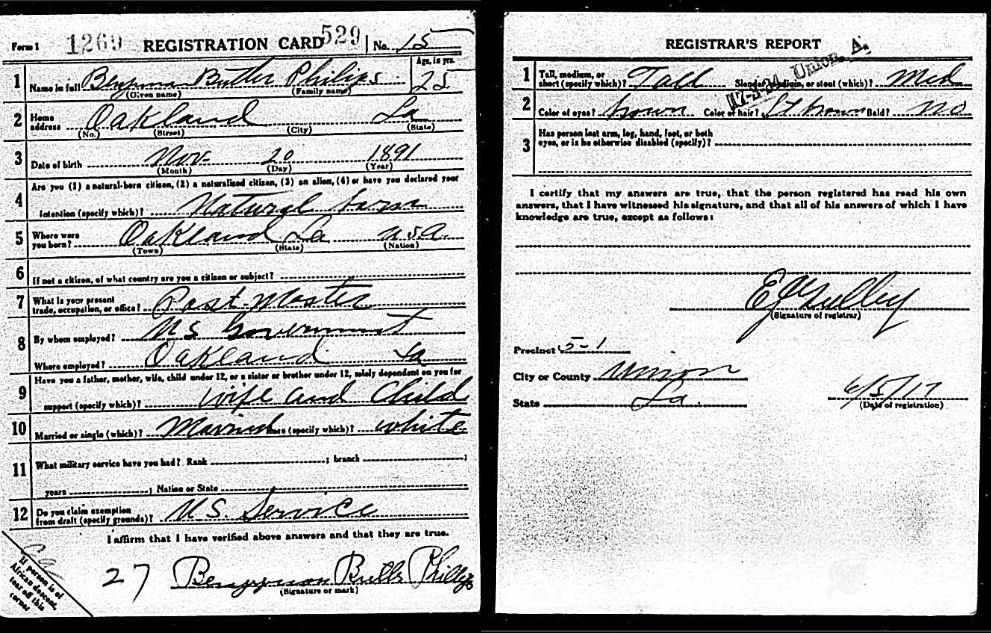 Form 1 1269 REGISTRATION CARD 529 No. 15
1 Name in full Benjamin Butler Philips Age, in yrs. 25
(Given name) (Family name)
2 Home address Oakland La
(No.) (Street) (City) (State)
3 Date of birth Nov. 20 1891
(Month) (Day) (Year)
4 Are you (1) a natural-born citizen, (2) a naturalized citizen, (3) an alien, (4) or have you declared your
intention (specify which)? Natural born
5 Where were you born? Oakland La U.S.A.
(Town) (State) (Nation)
6 If not a citizen, of what country are you a citizen or subject?
7 What is your present trade, occupation, or office? Post Master
8 By whom employed? U S Government
Where employed? Oakland La
9 Have you a father, mother, wife, child under 12, or a sister or brother under 12, solely dependent on you for
support (specify which)? Wife and Child
10 Married or single (which)? Married Race (specify which)? white
11 What military service have you had? Rank ; branch ;
years ; Nation or State
12 Do you claim exemption from draft (specify grounds)? U.S. Service
I affirm that I have verified above answers and that they are true.
27 Butler Phillips
(Signature or mark)
If person is of
African descent,
tear off this
corner
REGISTRAR'S REPORT
17-1-34 Union, A.
1 Tall, medium, or short (specify which)? Tall Slender, medium, or stout (which)? Med
2 Color of eyes? brown Color of hair? Lt brown Bald? No
3 Has person lost arm, leg, hand, foot, or both
eyes, or is he otherwise disabled (specify)?
I certify that my answers are true, that the person registered has read his own
answers, that I have witnessed his signature, and that all of his answers of which I have
knowledge are true, except as follows:
E J Gulley
(Signature of registrar)
Precinct 5-1
City or County Union
State La 6/5/17
(Date of registration)